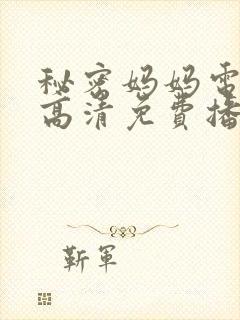 秘密妈妈电
高清免費播
靳軍